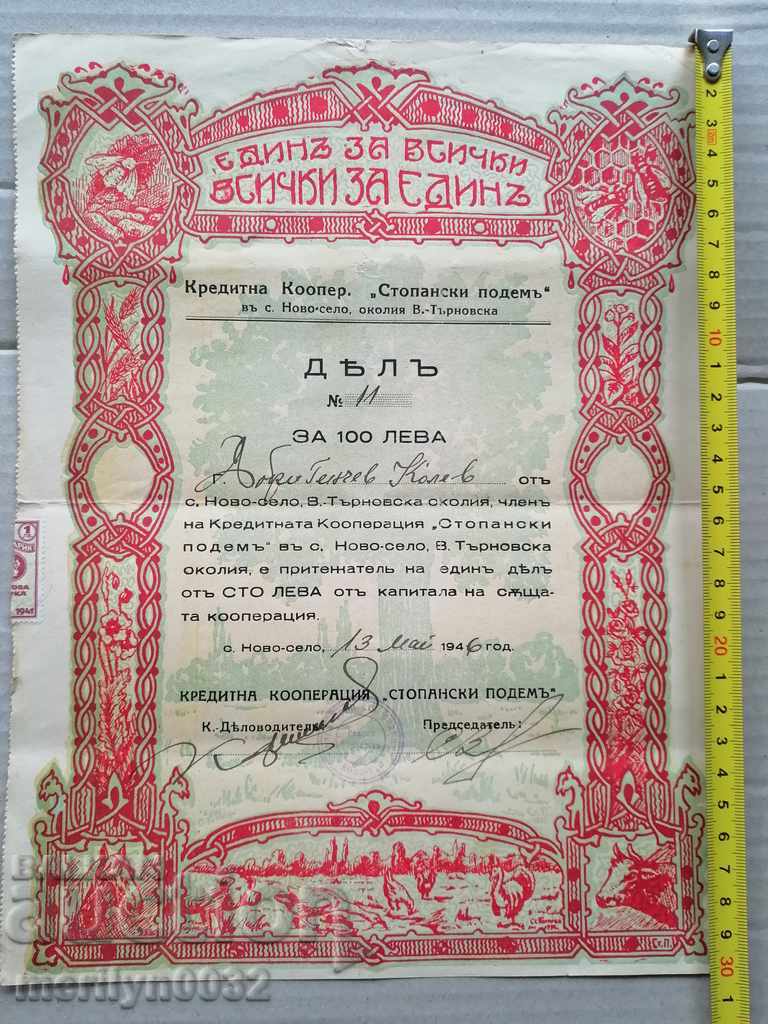 ЕДИНЪ ЗА ВСИЧКИ
ВСИЧКИ ЗА ЕДИНЪ
Кредитна Коопер. „Стопански подемъ“
въ с. Ново-село, околия В.-Търновска
ДѢЛЪ
№ 11
ЗА 100 ЛЕВА
Добри Генчев Колев отъ
с. Ново-село, В.-Търновска околия, членъ
на Кредитната Кооперация „Стопански
подемъ“ въ с. Ново-село, В. Търновска
околия, е притежатель на единъ дѣлъ
отъ СТО ЛЕВА отъ капитала на сѫща-
та кооперация.
с. Ново-село, 13 май 1946 год.
КРЕДИТНА КООПЕРАЦИЯ „СТОПАНСКИ ПОДЕМЪ“
К.-Дѣловодитель:
Председатель:
Ст.П.
1
1941
BAZAR
merilyn0032
2 3 4 5 6 7 8 9 10 1 2 3 4 5 6 7 8 9 20 1 2 3 4 5 6 7 8 9 30 1